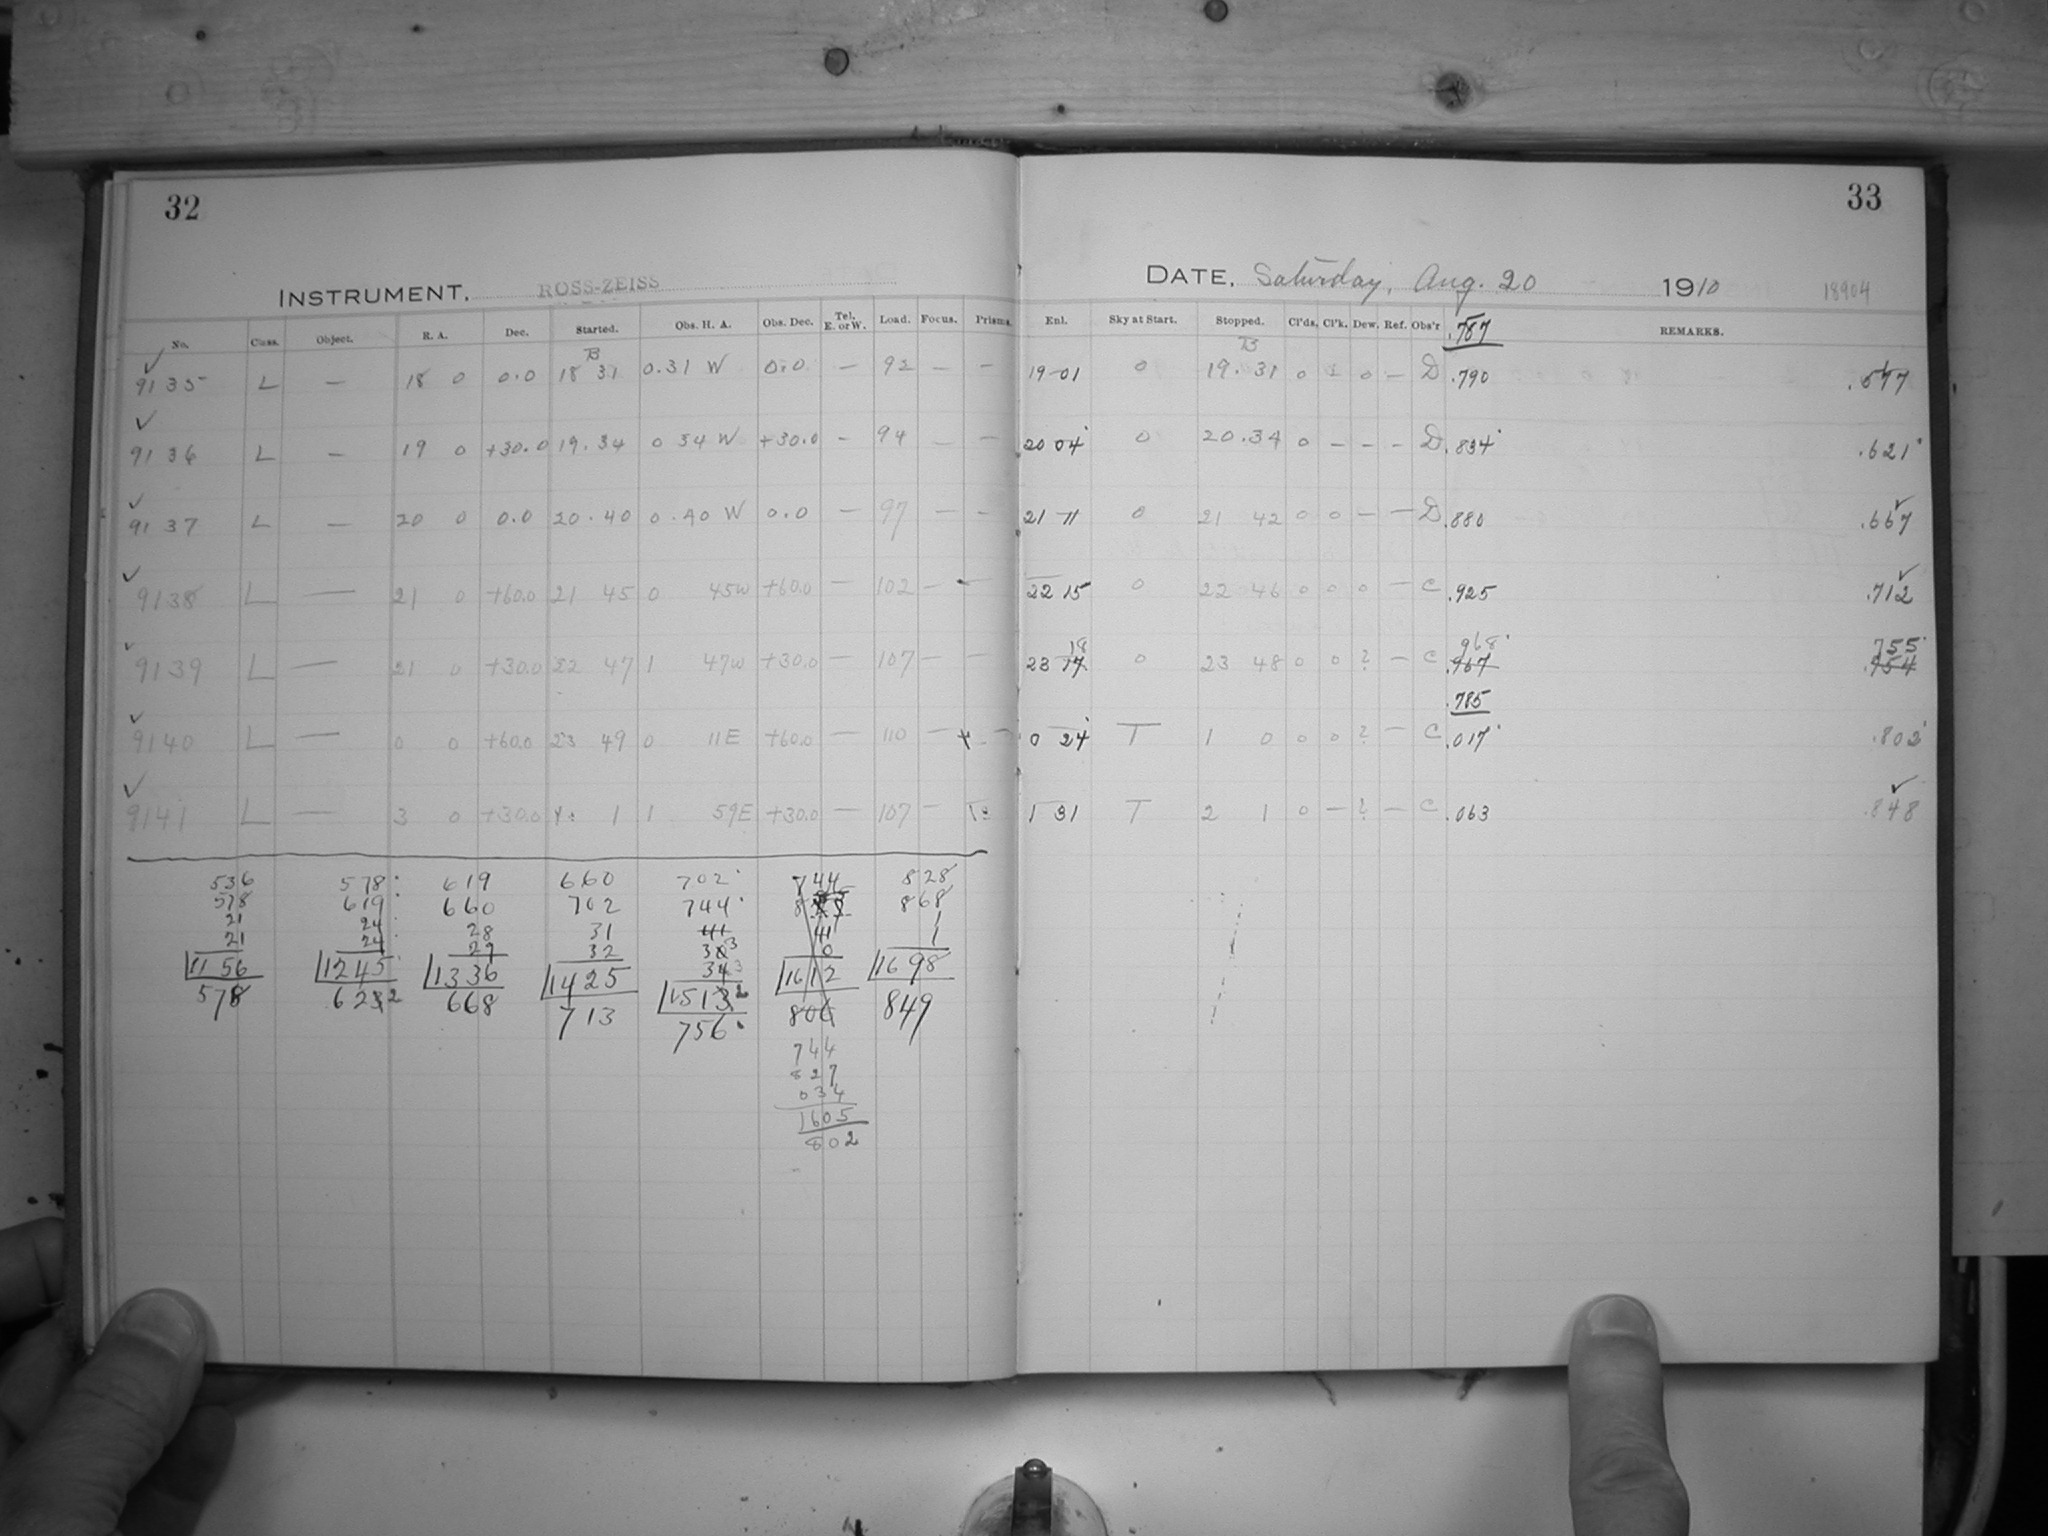 32
33
INSTRUMENT. ROSS-ZEISS
DATE, Saturday, Aug. 20 1910 18904
No. Class. Object. R. A. Dec. Started. Obs. H. A. Obs. Dec. Tel. E. or W. Load. Focus. Prisms. Enl. Sky at Start. Stopped. Cl'ds. Cl'k. Dew. Ref. Obs'r .787 REMARKS.
B B
9135 L — 18 0 0.0 18 31 0.31 W 0.0 — 92 — — 19-01 0 19.31 0 1 0 — D .790 .577
9136 L — 19 0 +30.0 19.34 0 34 W +30.0 — 94 — — 20 04 0 20.34 0 — — — D .834 .621
9137 L — 20 0 0.0 20.40 0.40 W 0.0 — 97 — — 21 11 0 21 42 0 0 — — D .880 .667
9138 L — 21 0 +60.0 21 45 0 45W +60.0 — 102 — — 22 15 0 22 46 0 0 0 — C .925 .712
18 968 755
9139 L — 21 0 +30.0 22 47 1 47W +30.0 — 107 — — 23 17 0 23 48 0 0 ? — C .967 .754
.785
9140 L — 0 0 +60.0 23 49 0 11E +60.0 — 110 — — 0 24 T 1 0 0 0 ? — C .017 .802
9141 L — 3 0 +30.0 1 1 59E +30.0 — 107 — 1 31 T 2 1 0 — ? — C .063 .848
536 578 619 660 702 744 828
578 619 660 702 744 868
21 24 28 31 41 41 1
21 24 29 32 0 1
1156 1245 1336 1425 151 2 1612 1698
578 62 2 668 713 756 806 849
744
827
034
1605
802